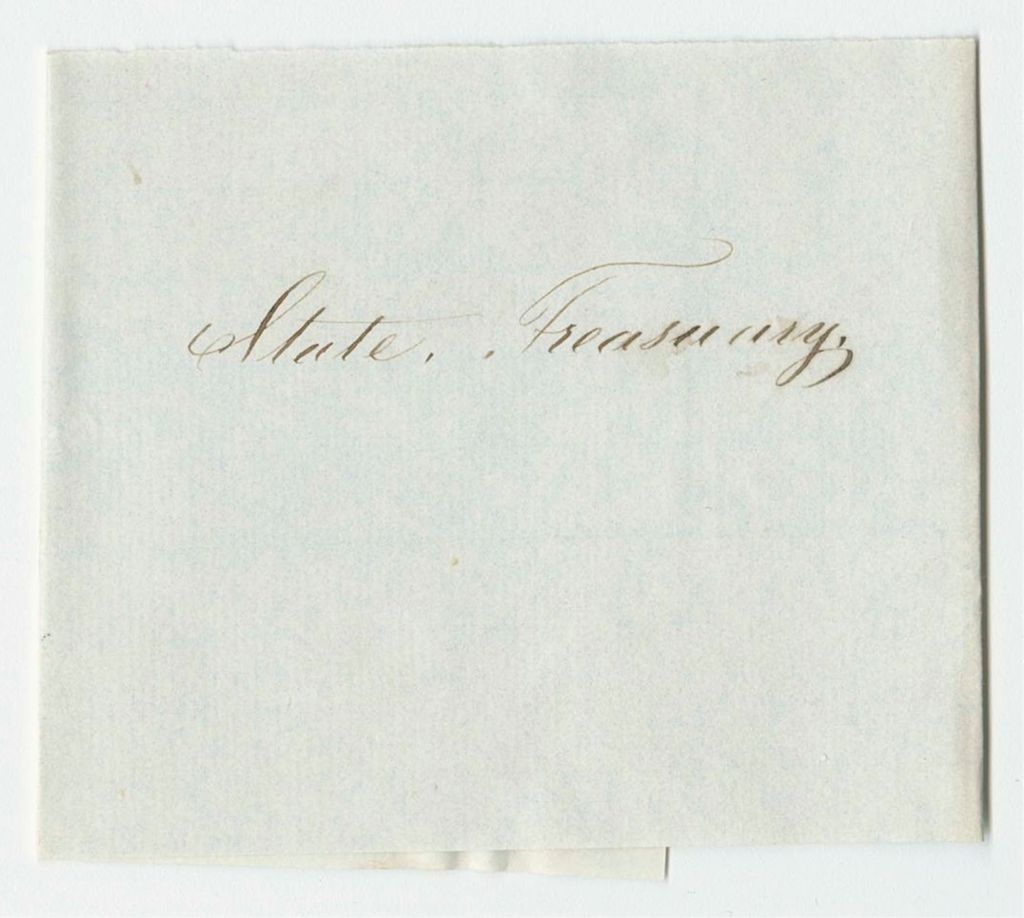 State. . Treasuary.